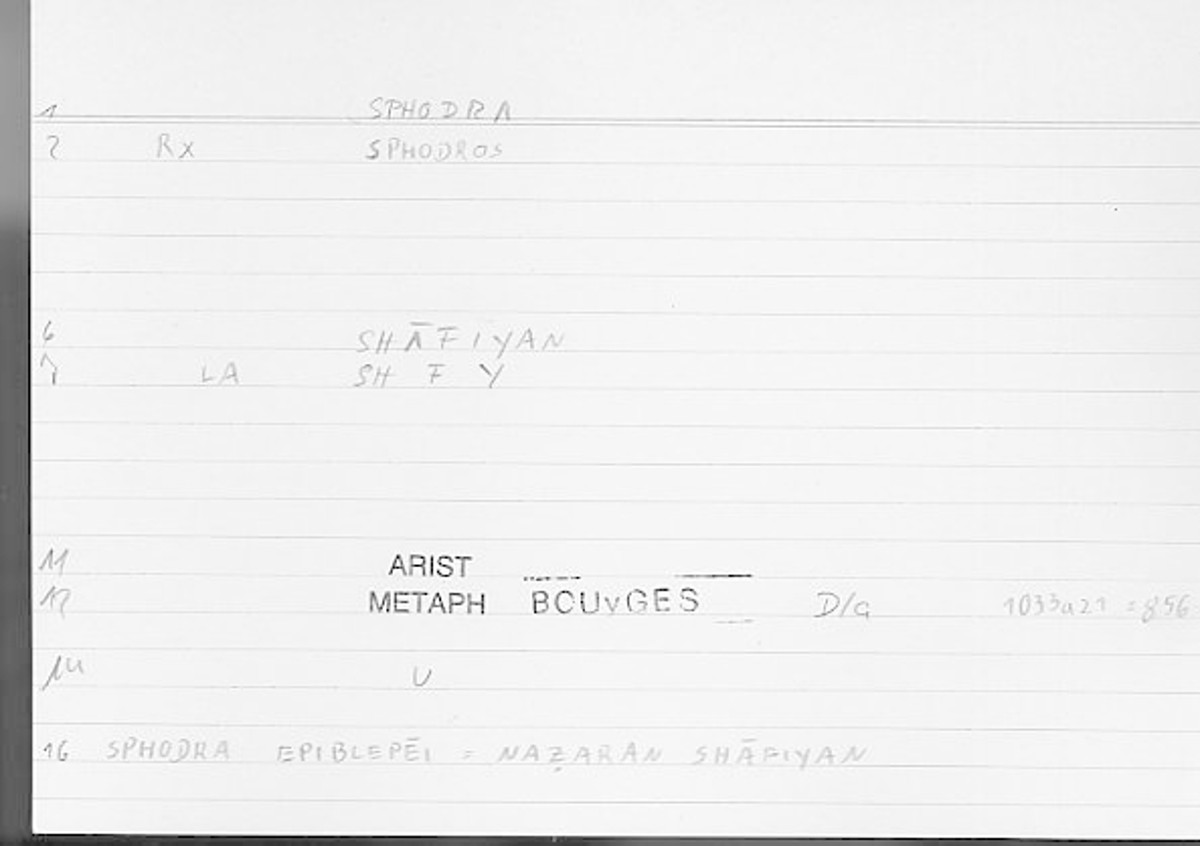 1 SPHODRA
2 Rx SPHODROS
6 SHĀFIYAN
7 LA SH F Y
11 ARIST
12 METAPH BOUYGES D/G 1033a21 = 856
14 U
16 SPHODRA EPIBLEPĒI = NAẒARAN SHĀFIYAN